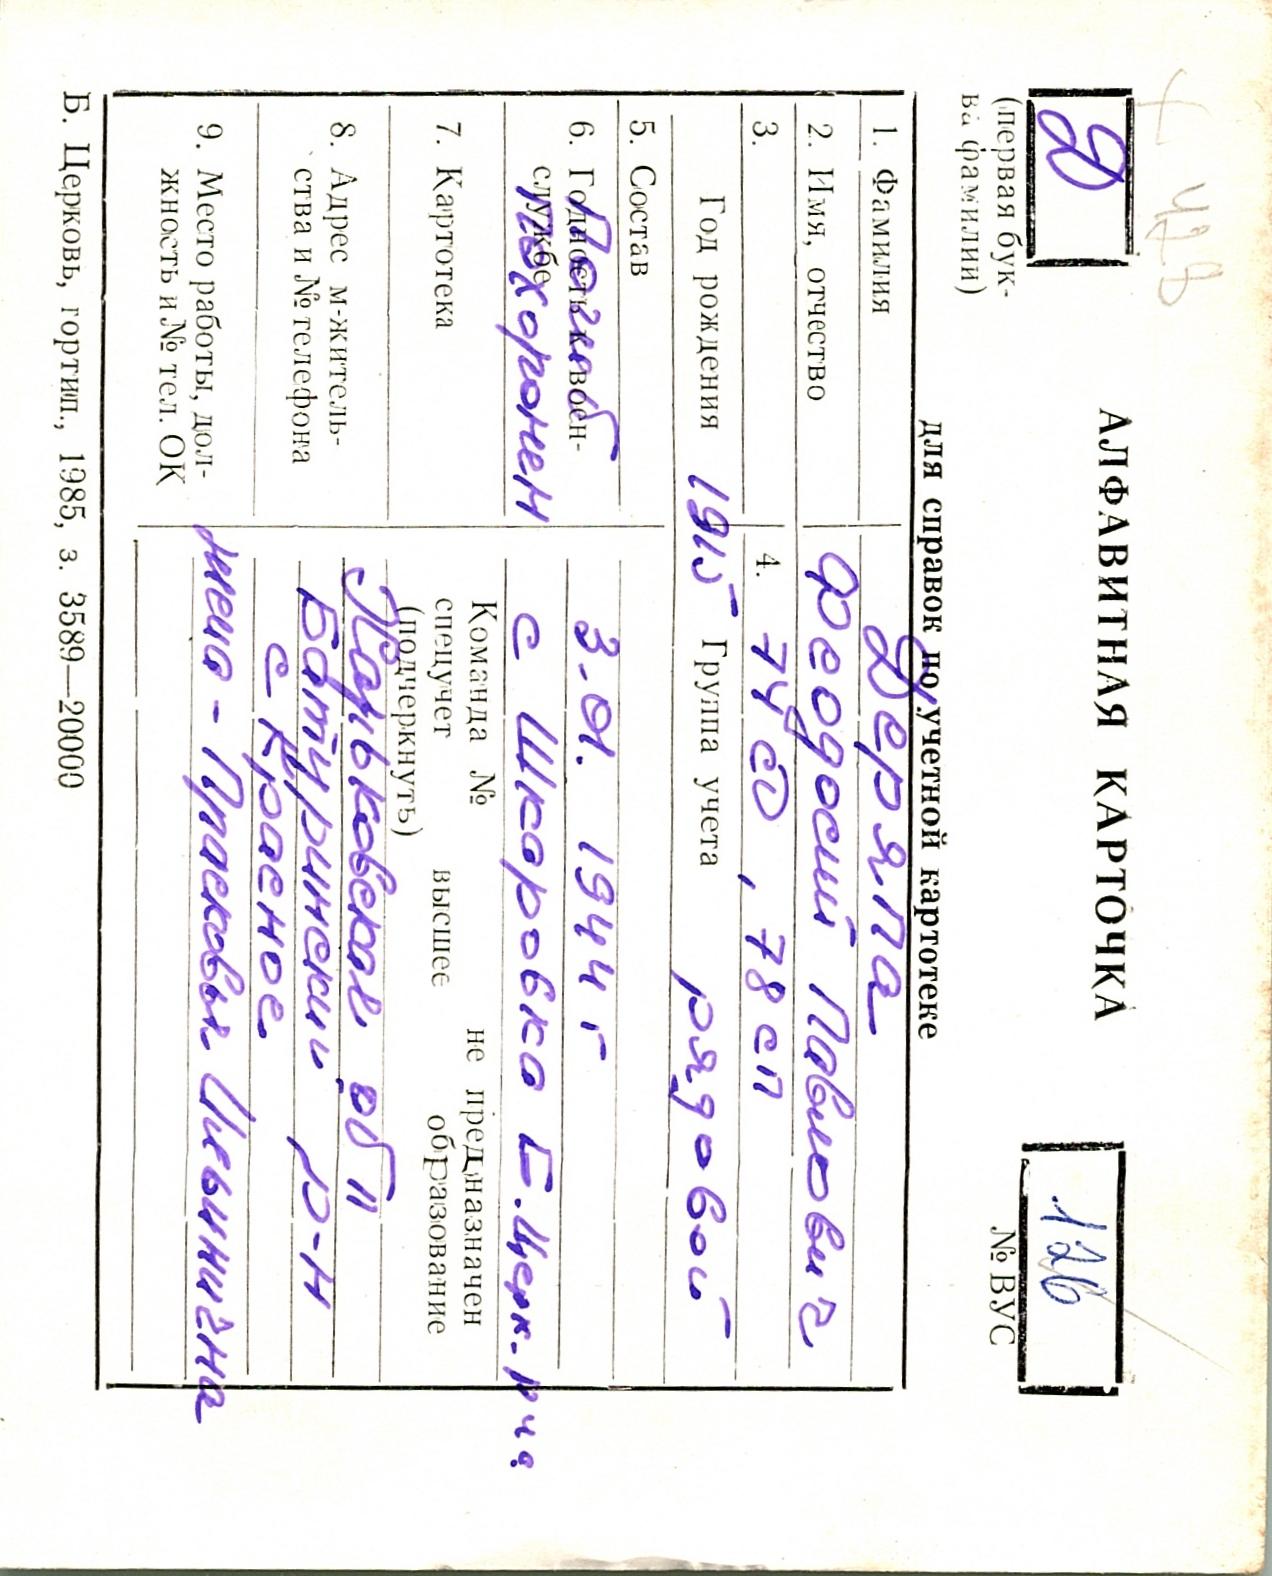 Д
(первая бук-
ва фамилии)
423
АЛФАВИТНАЯ КАРТОЧКА
для справок по учетной картотеке
126
№ ВУС
1. Фамилия Деряпа
2. Имя, отчество Феодосий Павлович
3. 4. 74 сд, 78 сп
Год рождения 1915 Группа учета рядовой
5. Состав
6. Годность к воен-
службе
Погиб 3-01. 1944 г
похоронен с Шкаровка Б.Церк. р-на
7. Картотека
Команда № не предназначен
спецучет высшее образование
(подчеркнуть)
8. Адрес м-житель-
ства и № телефона
Харьковская обл
Батуринский р-н
с. Красное.
9. Место работы, дол-
жность и № тел. ОК
Прасковья Ильинична
Б. Церковь, гортип., 1985, з. 3589—20000